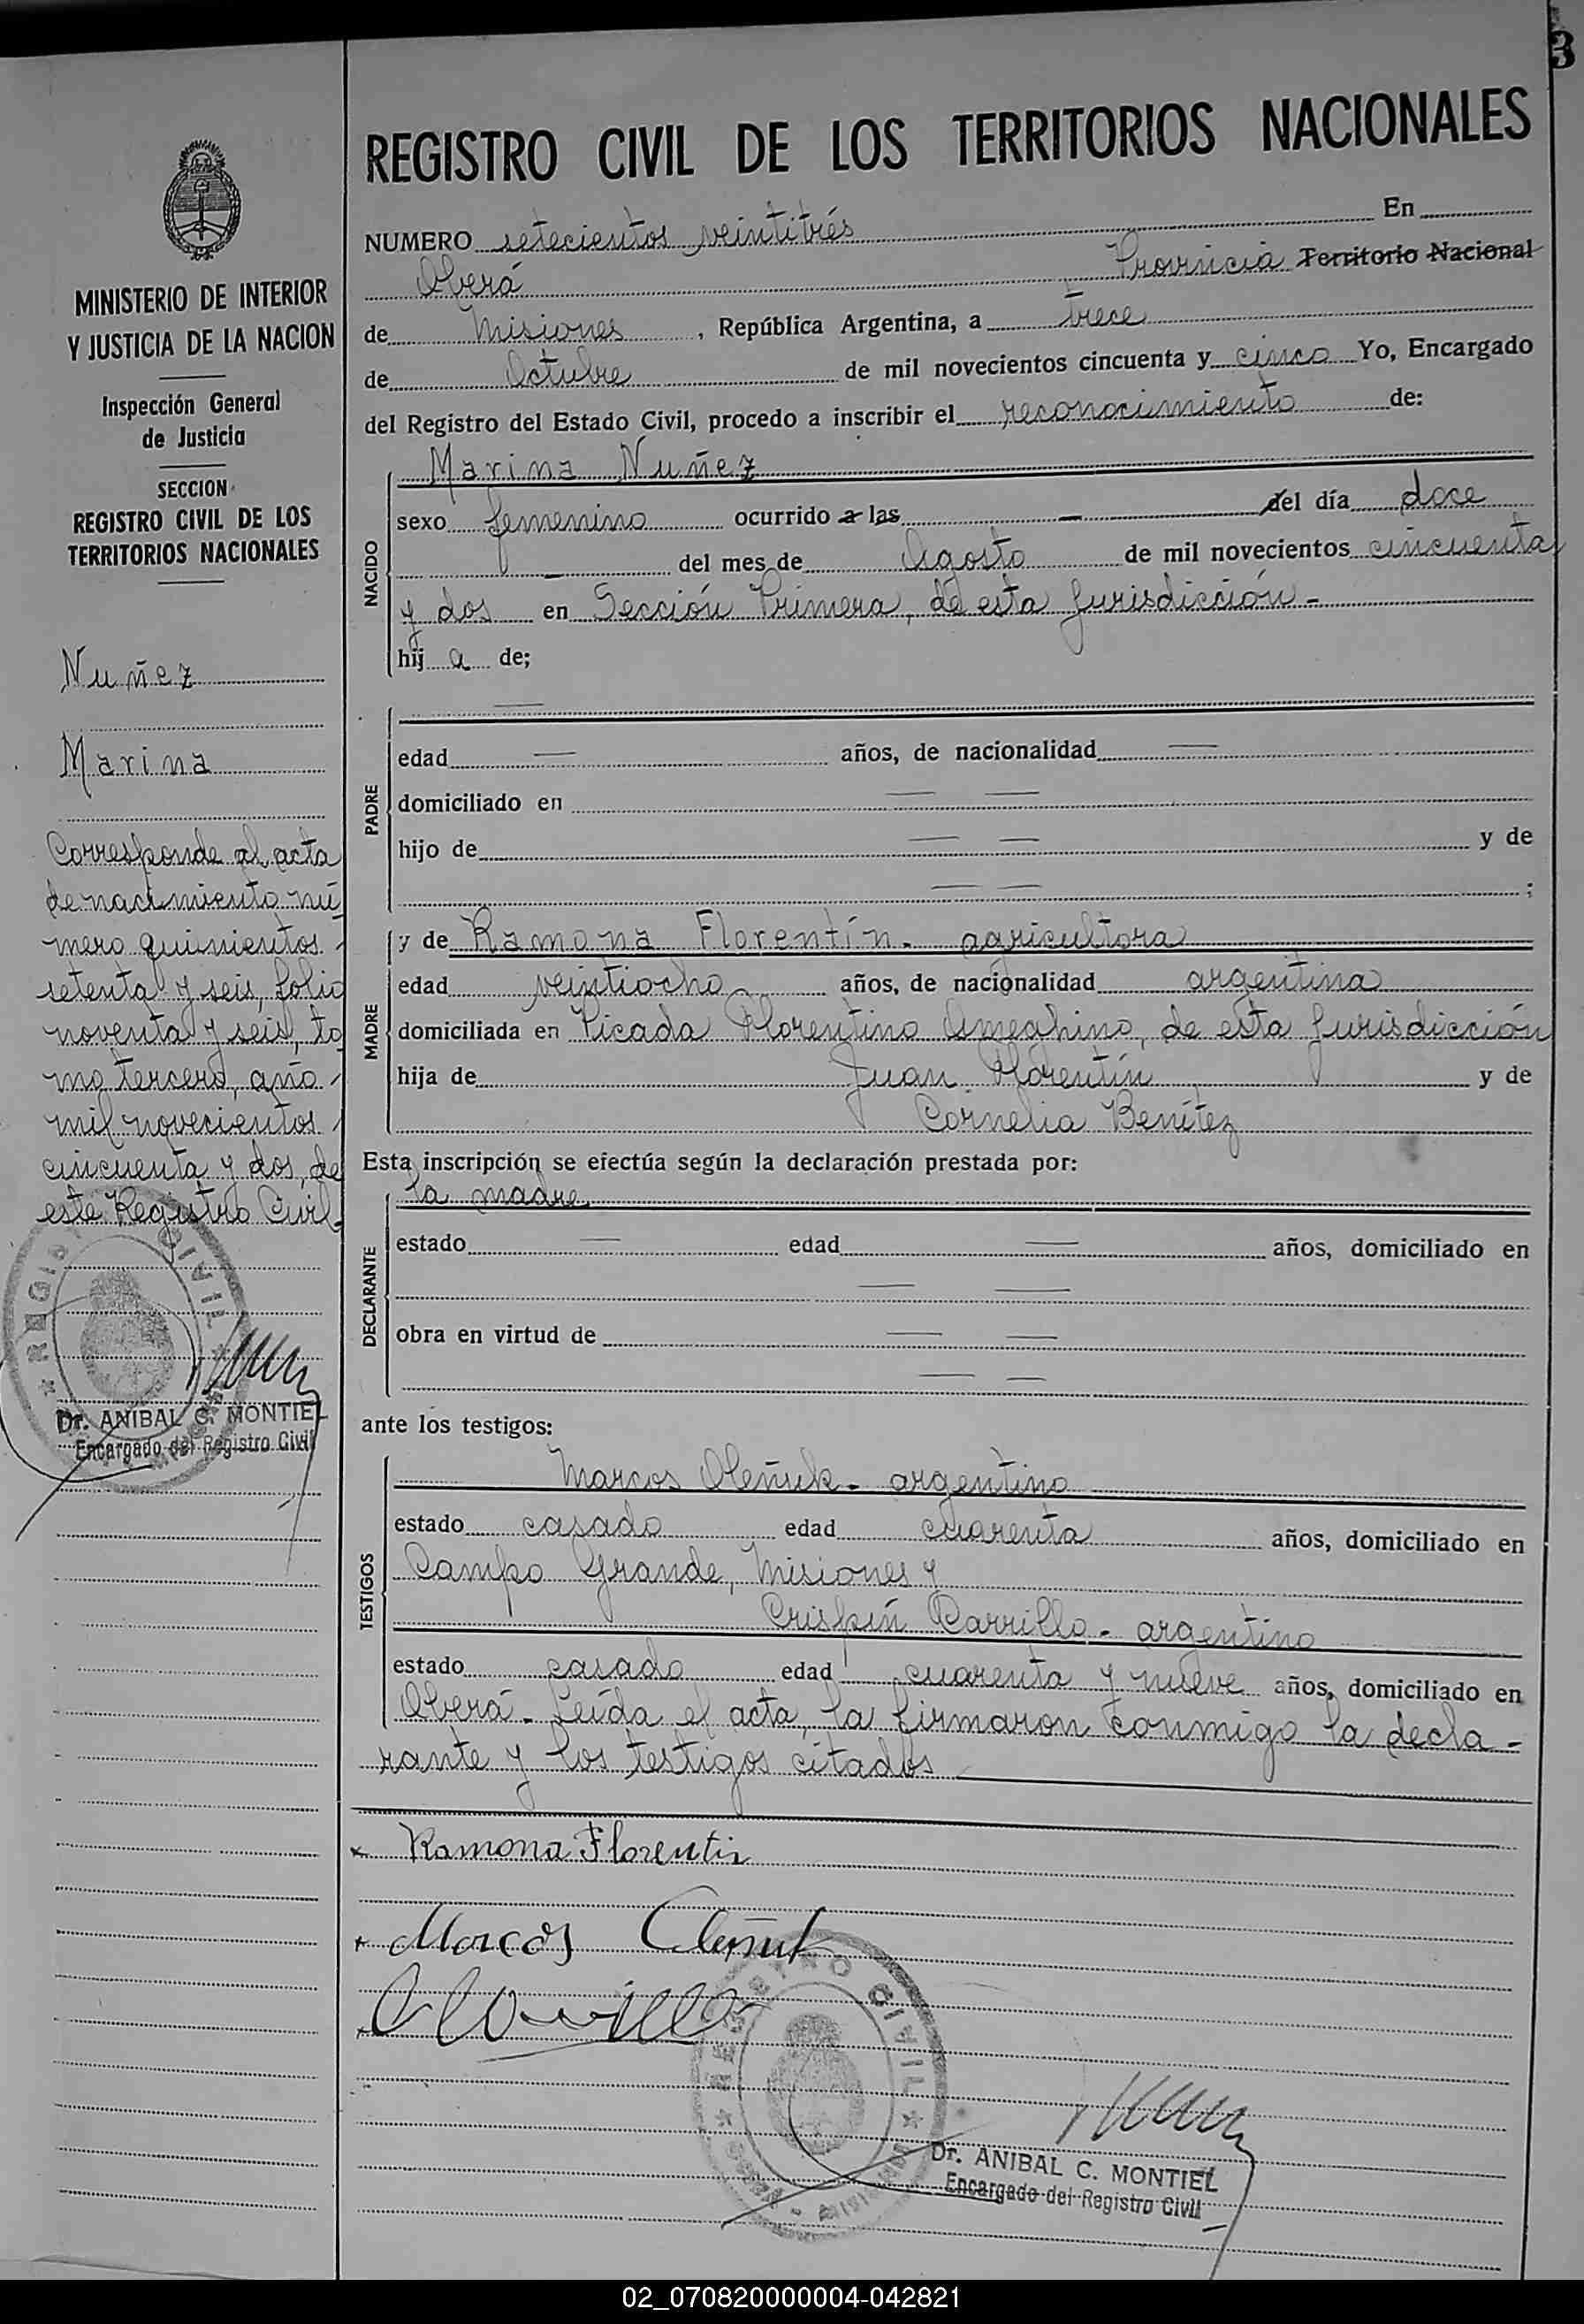 3
REGISTRO CIVIL DE LOS TERRITORIOS NACIONALES
NUMERO setecientos veintitrés En
Oberá Provincia Territorio Nacional
de Misiones, República Argentina, a trece
de Octubre de mil novecientos cincuenta y cinco Yo, Encargado
del Registro del Estado Civil, procedo a inscribir el reconocimiento de:
NACIDO
Marina Nuñez
sexo femenino ocurrido a las — del día doce
— del mes de Agosto de mil novecientos cincuenta
y dos en Sección Primera, de esta Jurisdicción -
hij a de;
PADRE
—
edad — años, de nacionalidad —
domiciliado en — —
hijo de — — y de
— — ;
MADRE
y de Ramona Florentín - agricultora
edad veintiocho años, de nacionalidad argentina
domiciliada en Picada Florentino Ameghino, de esta Jurisdicción
hija de Juan Florentín y de
Cornelia Benítez
Esta inscripción se efectúa según la declaración prestada por:
DECLARANTE
la madre
estado — edad — años, domiciliado en
— —
obra en virtud de — —
— —
ante los testigos:
TESTIGOS
Marcos Oleñuk - argentino
estado casado edad cuarenta años, domiciliado en
Campo Grande, Misiones y
Crispín Carrillo - argentino
estado casado edad cuarenta y nueve años, domiciliado en
Oberá - Leída el acta, la firmaron conmigo la decla-
rante y los testigos citados
x Ramona Florentin
x Marcos Oleñuk
REGISTRO CIVIL
Dr. ANIBAL C. MONTIEL
Encargado del Registro Civil
MINISTERIO DE INTERIOR
Y JUSTICIA DE LA NACION
Inspección General
de Justicia
SECCION
REGISTRO CIVIL DE LOS
TERRITORIOS NACIONALES
Nuñez
Marina
Corresponde al acta
de nacimiento nú
mero quinientos
setenta y seis, folio
noventa y seis, to
mo tercero, año
mil novecientos
cincuenta y dos, de
este Registro Civil -
REGISTRO CIVIL
Dr. ANIBAL C. MONTIEL
Encargado del Registro Civil
02_070820000004-042821